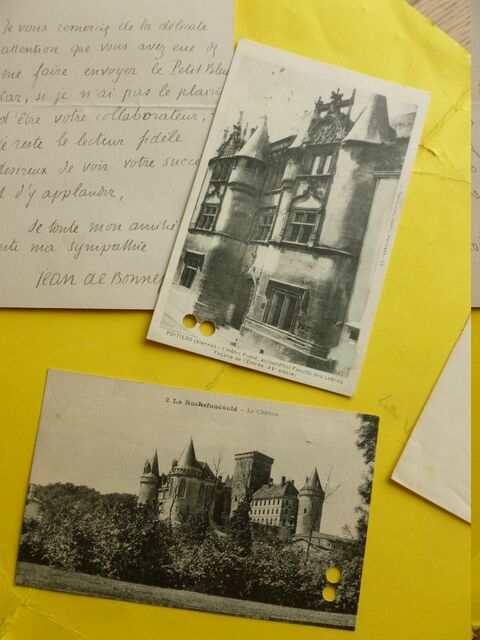 Je vous remercie de la délicate
attention que vous avez eue de
me faire envoyer le Petit Bleu
car, si je n'ai pas le plaisir
d'être votre collaborateur,
reste le lecteur fidèle
désireux de voir votre succ
d'y applaudir,
de toute mon amitié
ma sympathie
Jean de Bonne
POITIERS (Vienne) - L'Hôtel Fumé, aujourd'hui Faculté des Lettres
Façade de l'Entrée (XVe siècle)
2 La Rochefoucauld - Le Château